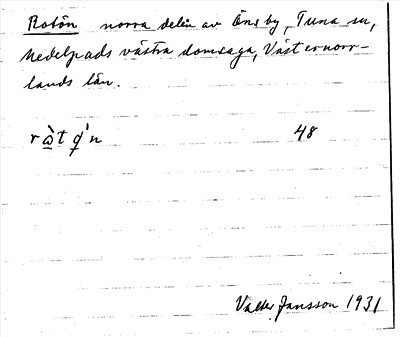 Rotön norra delen av Öns by, Tuna sn,
Medelpads västra domsaga, Västernorr-
lands län.
48
Valter Jansson 1931